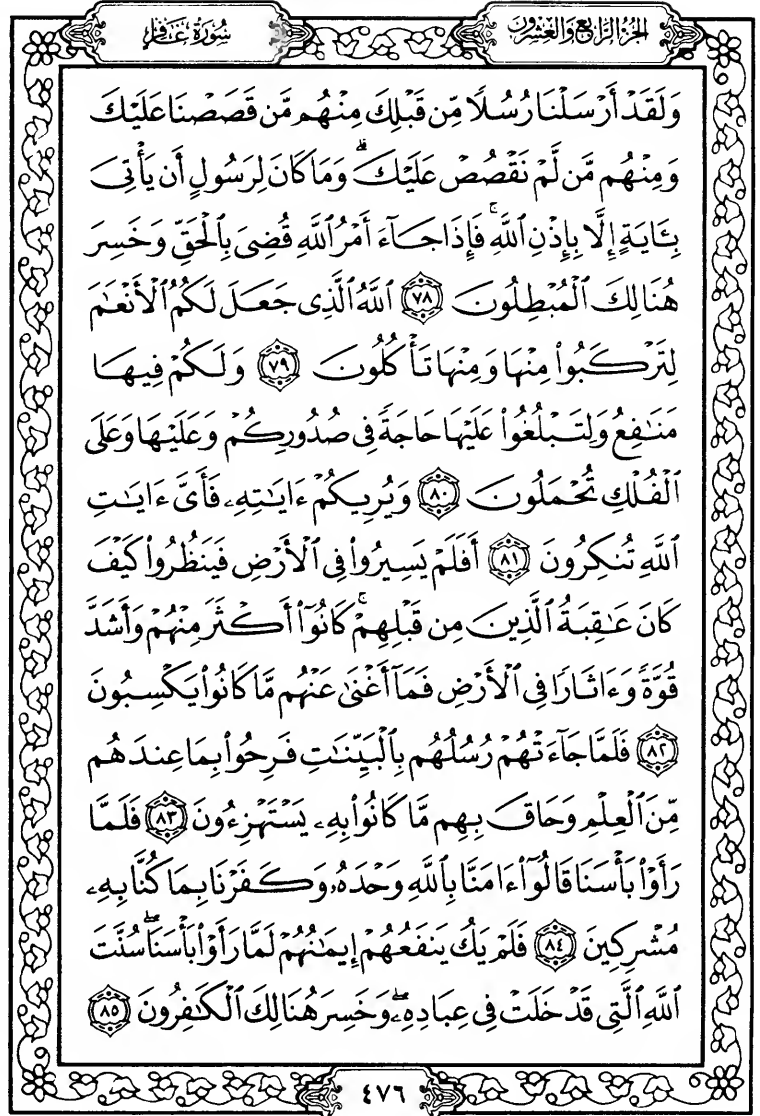 الجزء الرابع والعشرون
سورة غافر
وَلَقَدْ أَرْسَلْنَا رُسُلًا مِّن قَبْلِكَ مِنْهُم مَّن قَصَصْنَا عَلَيْكَ
وَمِنْهُم مَّن لَّمْ نَقْصُصْ عَلَيْكَ ۗ وَمَا كَانَ لِرَسُولٍ أَن يَأْتِىَ
بِـَٔايَةٍ إِلَّا بِإِذْنِ ٱللَّهِ ۚ فَإِذَا جَآءَ أَمْرُ ٱللَّهِ قُضِىَ بِٱلْحَقِّ وَخَسِرَ
هُنَالِكَ ٱلْمُبْطِلُونَ ٧٨ ٱللَّهُ ٱلَّذِى جَعَلَ لَكُمُ ٱلْأَنْعَٰمَ
لِتَرْكَبُوا۟ مِنْهَا وَمِنْهَا تَأْكُلُونَ ٧٩ وَلَكُمْ فِيهَا
مَنَٰفِعُ وَلِتَبْلُغُوا۟ عَلَيْهَا حَاجَةً فِى صُدُورِكُمْ وَعَلَيْهَا وَعَلَى
ٱلْفُلْكِ تُحْمَلُونَ ٨٠ وَيُرِيكُمْ ءَايَٰتِهِۦ فَأَىَّ ءَايَٰتِ
ٱللَّهِ تُنكِرُونَ ٨١ أَفَلَمْ يَسِيرُوا۟ فِى ٱلْأَرْضِ فَيَنظُرُوا۟ كَيْفَ
كَانَ عَٰقِبَةُ ٱلَّذِينَ مِن قَبْلِهِمْ ۚ كَانُوٓا۟ أَكْثَرَ مِنْهُمْ وَأَشَدَّ
قُوَّةً وَءَاثَارًا فِى ٱلْأَرْضِ فَمَآ أَغْنَىٰ عَنْهُم مَّا كَانُوا۟ يَكْسِبُونَ
٨٢ فَلَمَّا جَآءَتْهُمْ رُسُلُهُم بِٱلْبَيِّنَٰتِ فَرِحُوا۟ بِمَا عِندَهُم
مِّنَ ٱلْعِلْمِ وَحَاقَ بِهِم مَّا كَانُوا۟ بِهِۦ يَسْتَهْزِءُونَ ٨٣ فَلَمَّا
رَأَوْا۟ بَأْسَنَا قَالُوٓا۟ ءَامَنَّا بِٱللَّهِ وَحْدَهُۥ وَكَفَرْنَا بِمَا كُنَّا بِهِۦ
مُشْرِكِينَ ٨٤ فَلَمْ يَكُ يَنفَعُهُمْ إِيمَٰنُهُمْ لَمَّا رَأَوْا۟ بَأْسَنَا ۖ سُنَّتَ
ٱللَّهِ ٱلَّتِى قَدْ خَلَتْ فِى عِبَادِهِۦ ۖ وَخَسِرَ هُنَالِكَ ٱلْكَٰفِرُونَ ٨٥
٤٧٦